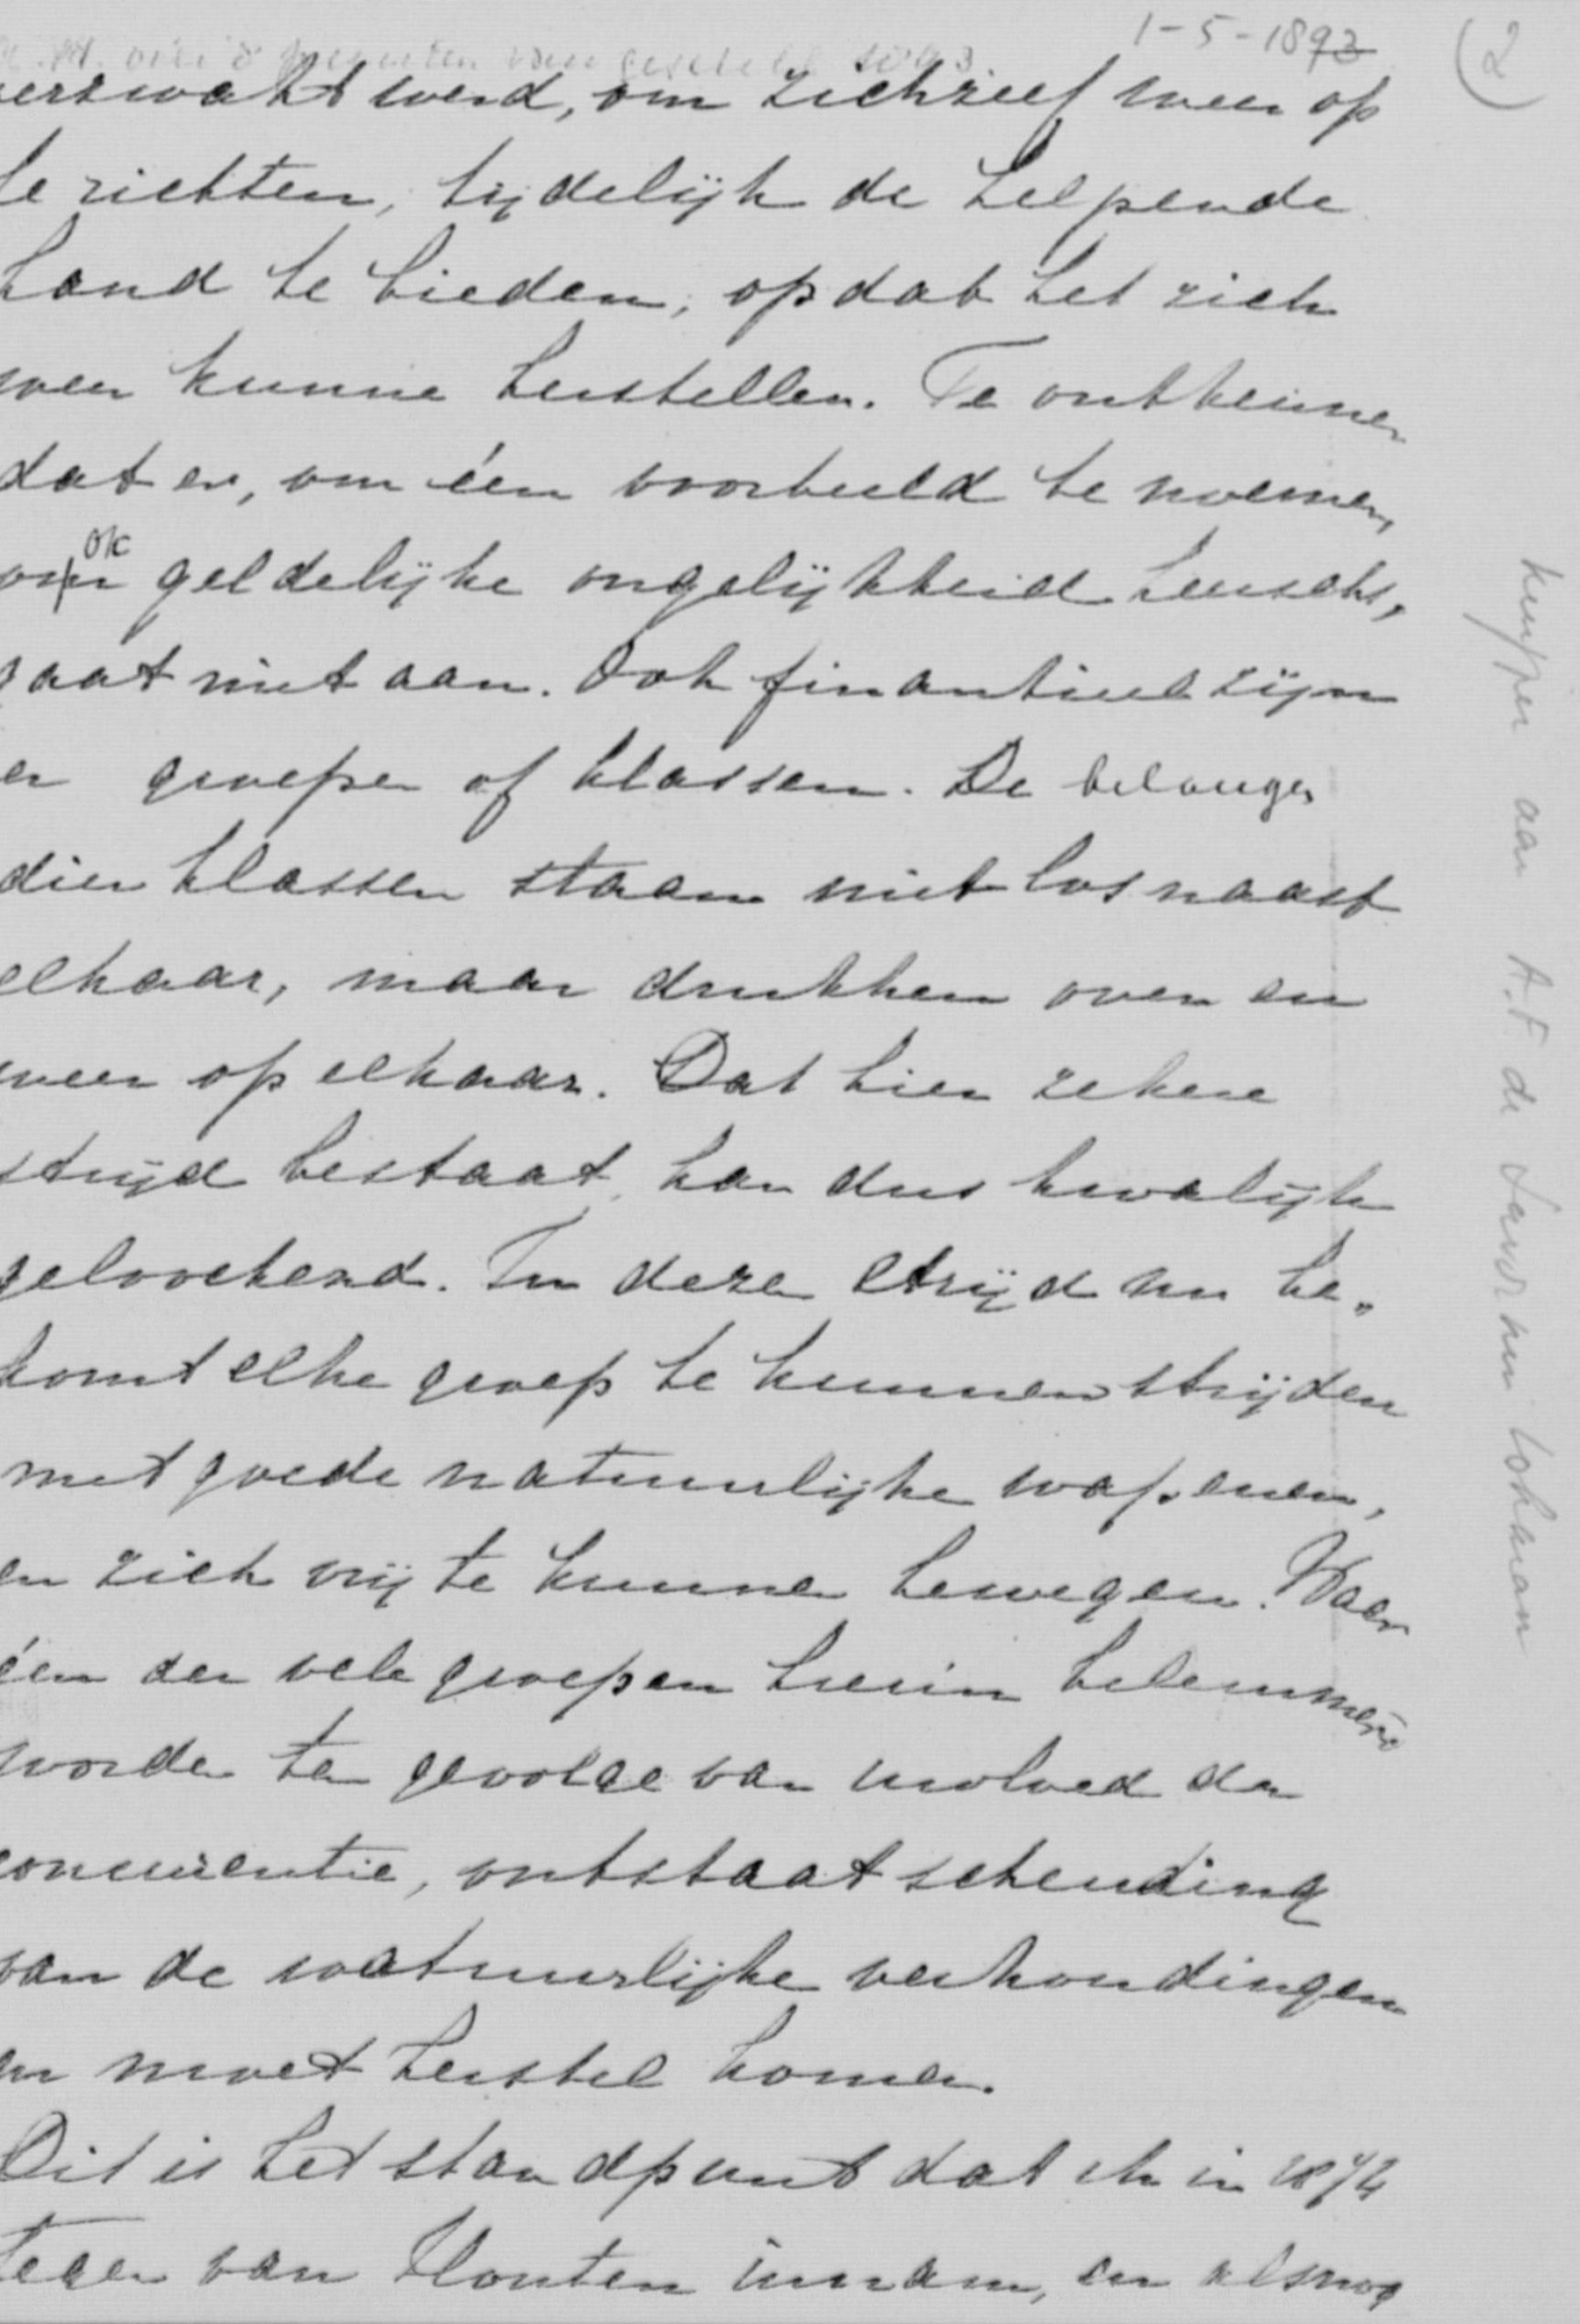 1-5-1892
(2)
verzwakt werd, om zichzelf weer op
te richten, tijdelijk de helpende
hand te bieden, opdat het zich
weer kunne herstellen. Te ontkennen
dat er, om één voorbeeld te noemen,
ook geldelijke ongelijkheid heerscht,
gaat niet aan. Ook finantieel zijn
er groepen of klassen. De belangen
dier klassen staan niet los naast
elkaar, maar drukken over en
weer op elkaar. Dat hier zekere
strijd bestaat, kan dus kwalijk
geloochend. In dezen strijd nu be„
komt elke groep te kunnen strijden
met goede natuurlijke wapenen,
en zich vrij te kunnen bewegen. Waar
één der vele groepen hierin belemmerd
worde ten gevolge van invloed der
concurrentie, ontstaat schending
van de natuurlijke verhoudingen
en moet herstel komen.
Dit is het standpunt dat ik in 1874
tegen van Houten innam, en alsnog
Kuyper aan A.F. de Savornin Lohman